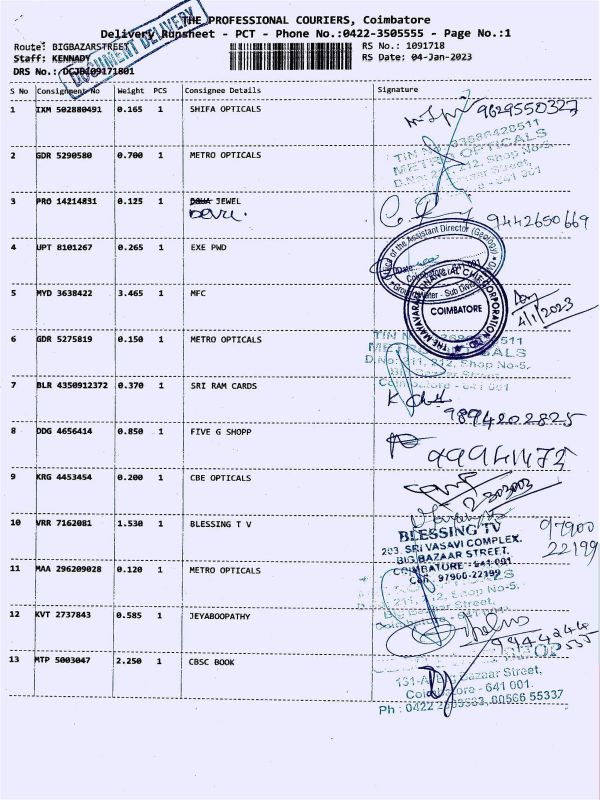 THE PROFESSIONAL COURIERS, Coimbatore
Delivery Runsheet - PCT - Phone No.:0422-3505555 - Page No.:1
DOCUMENT DELIVERY
Route: BIGBAZARSTREET
RS No.: 1091718
Staff: KENNADY
RS Date: 04-Jan-2023
DRS No.:
S No Consignment No Weight PCS Consignee Details Signature
1 IXM 502880491 0.165 1 SHIFA OPTICALS 9629550327
METRO OPTICALS
2 GDR 5290580 0.700 1 METRO OPTICALS
3 PRO 14214831 0.125 1 JEWEL 9442650669
4 UPT 8101267 0.265 1 EXE PWD
Office of the Assistant Director (Geology)
5 MYD 3638422 3.465 1 MFC
COIMBATORE
4/1/2023
6 GDR 5275819 0.150 1 METRO OPTICALS
D.No: 211, 212, Shop No-5,
Coimbatore - 641 001
7 BLR 4350912372 0.370 1 SRI RAM CARDS
9894202825
8 DDG 4656414 0.850 1 FIVE G SHOPP
9 KRG 4453454 0.200 1 CBE OPTICALS
10 VRR 7162081 1.530 1 BLESSING T V
BLESSING TV
203, SRI VASAVI COMPLEX.
BIG BAZAAR STREET,
COIMBATORE - 641 001
Cell: 97900-22199
97900
22199
11 MAA 296209028 0.120 1 METRO OPTICALS
211, 212, Shop No-5,
12 KVT 2737843 0.585 1 JEYABOOPATHY
13 MTP 5003047 2.250 1 CBSC BOOK
Bazaar Street,
Coimbatore - 641 001.
Ph : 0422 80566 55337